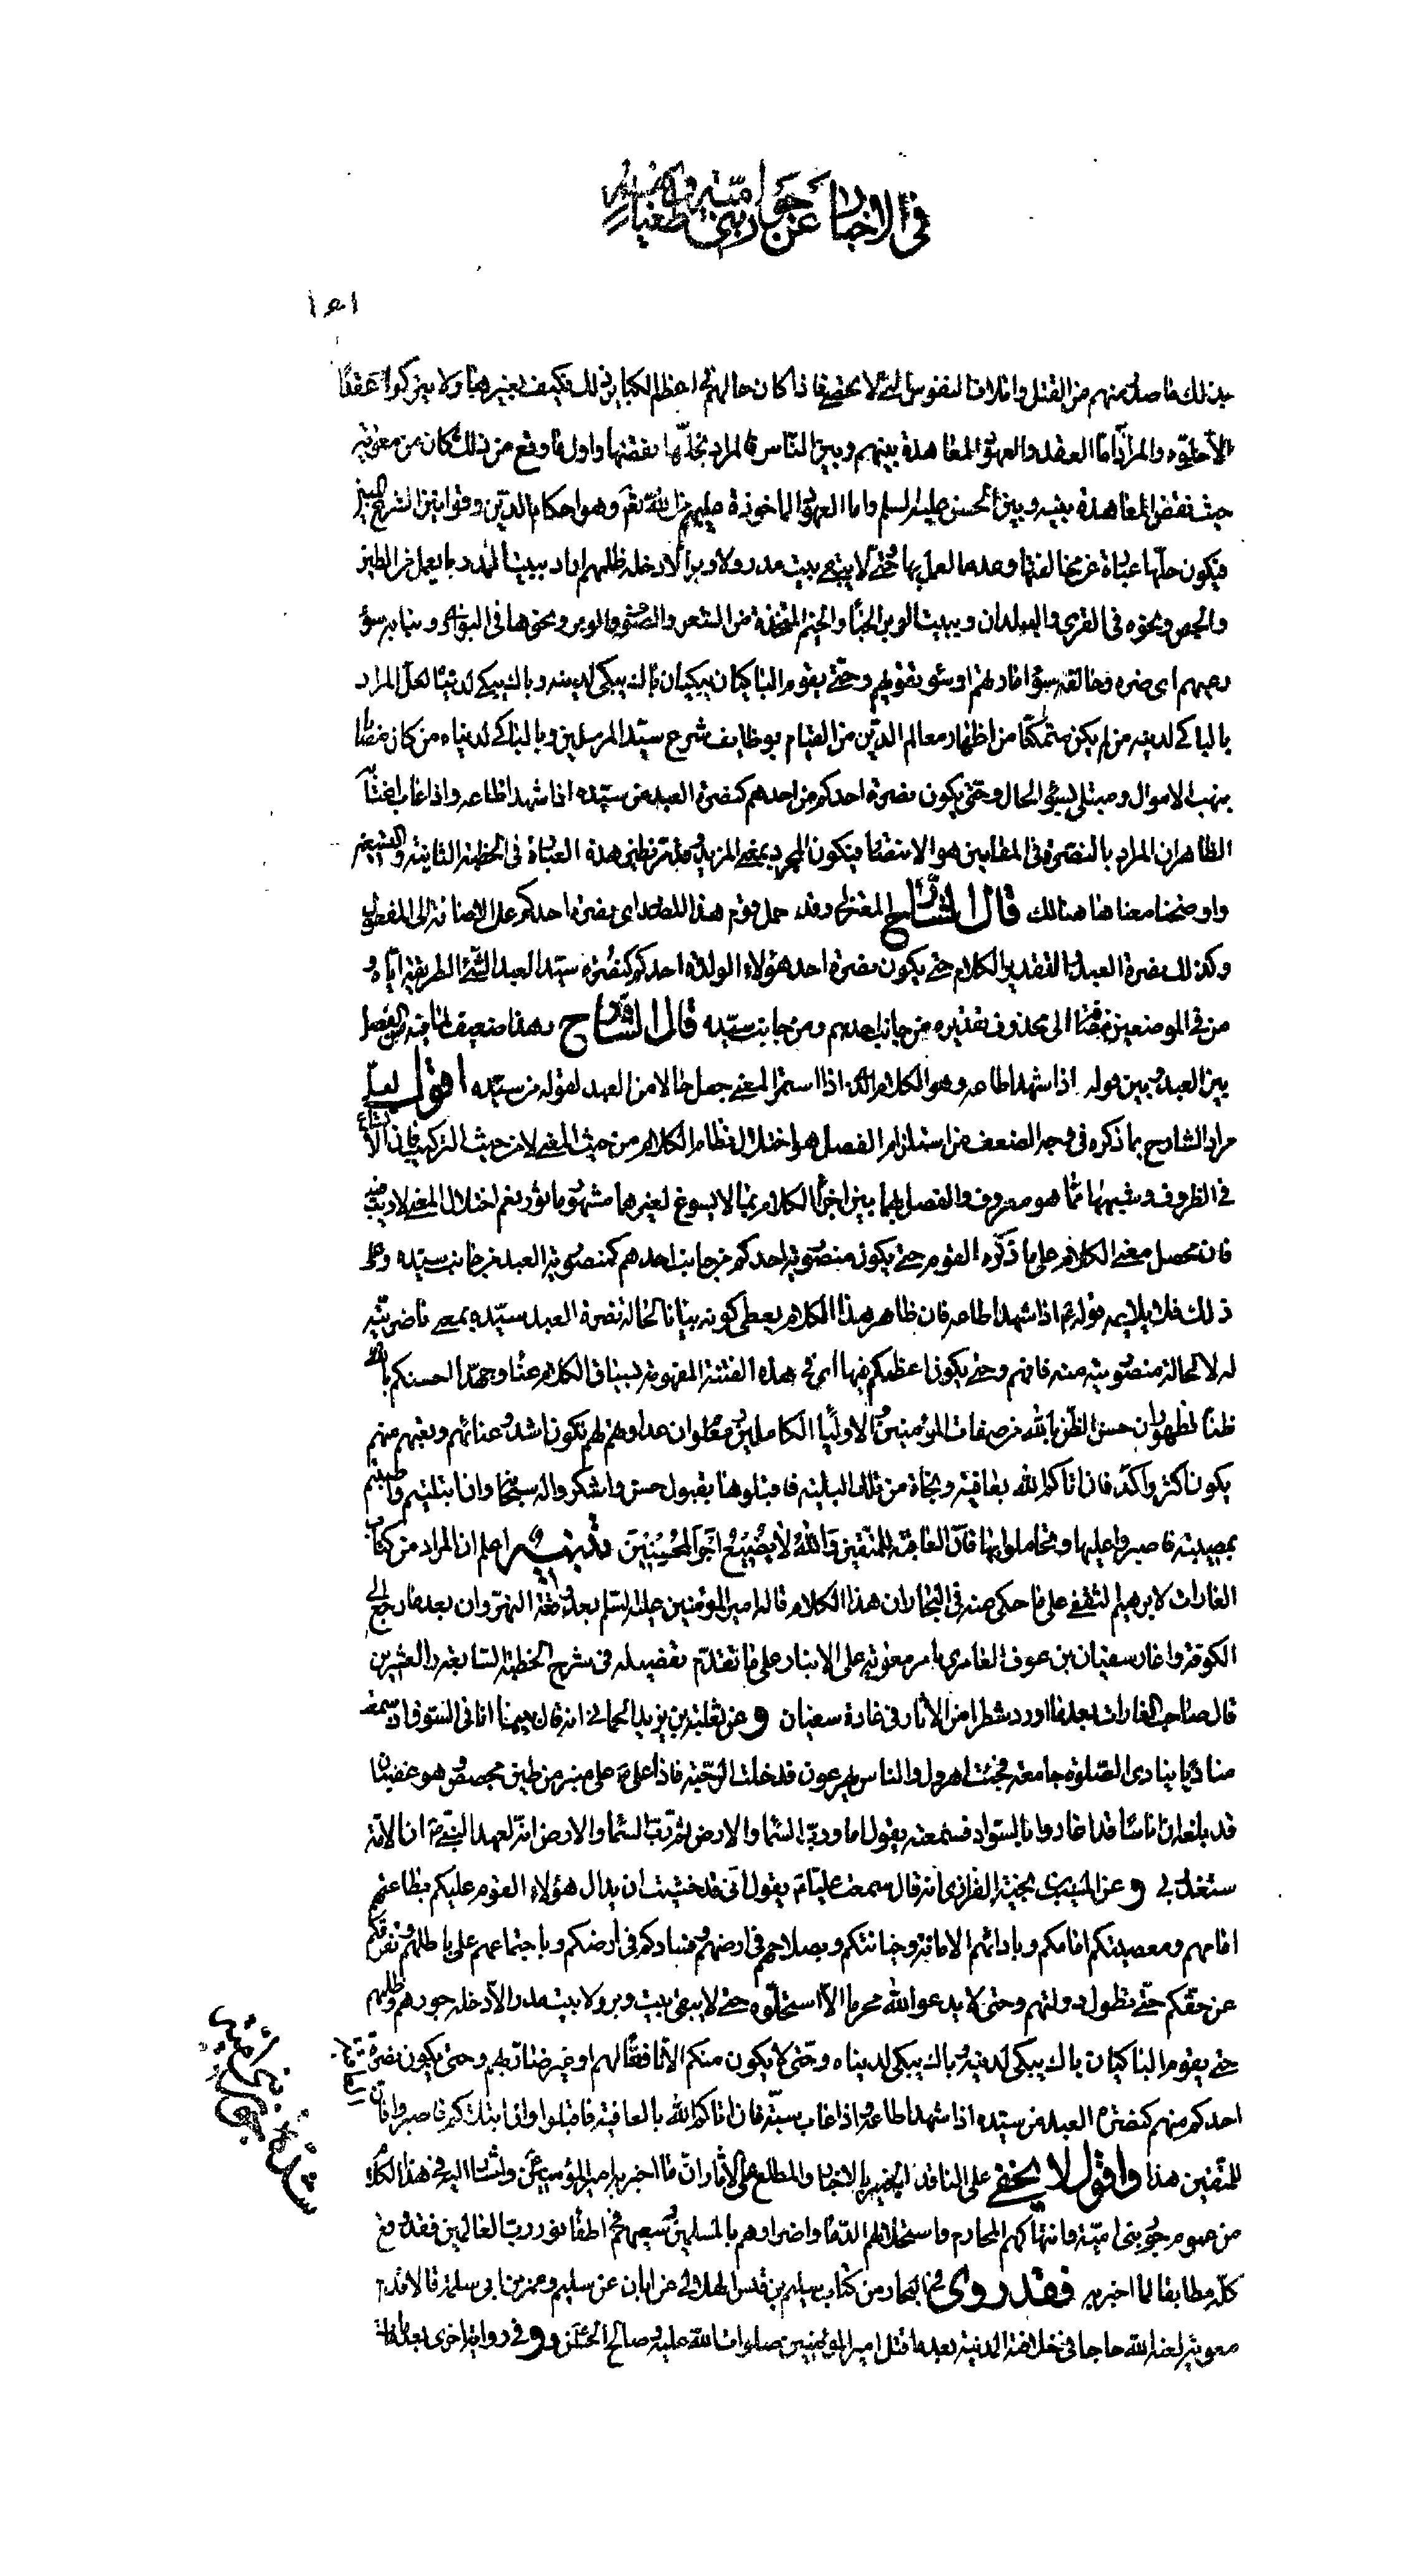 في الاخبار عن جور بني امية وطغيانهم
١٥١
بذلك ما صدر منهم من القتل واتلاف النفوس التي لا تحصى فاذا كان حالهم في اعظم الكباير ذلك فكيف بغيرها ولا يتركوا عقدا
الا حلوه والمراد اما العقد والعهود المعاهدة بينهم وبين الناس فالمراد بحلها نقضها واول ما وقع من ذلك كان من معوية
حيث نقض المعاهدة بينه وبين الحسن عليه السلم واما العهود الماخوذة عليهم من الله تعالى وهو احكام الدين وقوانين الشرع المبين
فيكون حلها عبارة عن مخالفتها وعدم العمل بها وحتى لا يبقى بيت مدر ولا وبر الا دخله ظلمهم اراد ببيت المدر ما يعمل من الطين
والجص ونحوه في القرى والبلدان وببيت الوبر الخباء والخيم المتخذة من الشعر والصوف والوبر ونحوها في البوادي ونبا به سوء
رعيهم اى ضره وخالفه سوء اماراتهم او سوء تقويهم وحتى يقوم الباكيان يبكيان باك يبكي لدينه وباك يبكي لدنياه لعل المراد
بالباكي لدينه من لم يكن متمكنا من اظهار معالم الدين من القيام بوظايف شرع سيد المرسلين وبالباكي لدنياه من كان مضابا
بنهب الاموال ومبتلى بسوء الحال وحتى يكون نصرة احدكم من احدهم كنصرة العبد من سيده اذا شهد اطاعه واذا غاب اغتابه
الظاهر ان المراد بالنصرة في المقامين هو الانتصار فيكون المجرد بمعنى المزيد وقد مر نظير هذه العبارة في الخطبة الثانية والتسعين
واوضحنا معناها هنالك قال الشارح المعتزلي وقد حمل قوم هذا المصدر اى نصرة احدكم على الاضافة الى المفعول
وكذلك نصرة العبد والتقدير الكلام حتى يكون نصرة احد هؤلاء الولاة احدكم كنصرة سيد العبد السيئ الطريقة اياه و
من في الموضعين مضافة الى محذوف تقديره من جانب احدهم ومن جانب سيده قال الشارح وهذا ضعيف لما فيه من الفصل
بين العبد وبين قوله اذا شهد اطاعه وهو الكلام الذي اذا استمر المعنى جعل حالا من العبد لقوله من سيده اقول لعل
مراد الشارح بما ذكره في وجه الضعف من استلزام الفصل هو اختلال نظام الكلام من حيث المعنى لا من حيث التركيب فان الاتساع
في الظروف وشبهها مما هو معروف والفصل بهما بين اجزاء الكلام بما لا يسوغ لغيرهما مشهور ماثور نعم اختلال المعنى لا ريب فيه
فان محصل معنى الكلام على ما ذكره القوم حتى يكون منصورية احدكم من جانب احدهم كمنصورية العبد من جانب سيده وعلى
ذلك فلا يلايمه قوله اذا شهد اطاعه فان ظاهر هذا الكلام يعطي كونه بيانا لحالة نصرة العبد سيده بمعنى ناصريته
له لا لحالة منصوريته منه فافهم وحتى يكون اعظمكم فيها اى في هذه الفتنة المفهومة بسياق الكلام عناء وجهدا احسنكم بالله
ظنا لظهور ان حسن الظن بالله من صفات المؤمنين والاولياء الكاملين ومعلوم ان عداوتهم لهم تكون اشد وعنائهم وتعبهم منهم
يكون اكثر واكد فان اتاكم الله بعافية ونجاة من تلك البلية فاقبلوها بقبول حسن واشكروا له سبحانه وان ابتليتم واصبتم
بمصيبة فاصبروا عليها وتحاملوا بها فان العاقبة للمتقين والله لا يضيع اجر المحسنين تنبيه اعلم ان المراد من كتاب
الغارات لابرهيم الثقفي على ما حكى عنه في البحار ان هذا الكلام قاله امير المؤمنين عليه السلم بعد وقعة النهروان بعد ما رجع الى
الكوفة واغار سفيان بن عوف الغامري بامر معوية على الانبار على ما تقدم تفصيله في شرح الخطبة السابعة والعشرين
قال صاحب الغارات بعد ما اورد شطرا من الاثار في غارة سفيان وعن ثعلبة بن يزيد الحماني انه قال بينما انا في السوق اذ سمعت
مناديا ينادى الصلوة جامعة فجئت اهرول والناس يهرعون فدخلت الرحبة فاذا علي على منبر من طين مجصص وهو غضبان
قد بلغه ان ناسا قد اغاروا بالسواد فسمعته يقول اما ورب السماء والارض ثم رب السماء والارض انه لعهد النبي ان الامة
ستغدر بي وعن المسيب بن نجبة الفزارى انه قال سمعت عليا يقول اني قد خشيت ان يدال هؤلاء القوم عليكم بطاعتهم
امامهم ومعصيتكم امامكم وبادائهم الامانة وخيانتكم وبصلاحهم في ارضهم وفسادكم في ارضكم وباجتماعهم على باطلهم وتفرقكم
عن حقكم حتى تطول دولتهم وحتى لا يدعو الله محرما الا استحلوه حتى لا يبقى بيت وبر ولا بيت مدر الا دخله جورهم وظلمهم
حتى يقوم الباكيان باك يبكي لدينه وباك يبكي لدنياه وحتى لا يكون منكم الا نافعا لهم او غير ضار بهم وحتى يكون نصرة
احدكم منهم كنصرة العبد من سيده اذا شهد اطاعه واذا غاب سبه فان اتاكم الله بالعافية فاقبلوا وان ابتلاكم فاصبروا فان العاقبة
للمتقين هذا واقول لا يخفى على الناقد الخبير بالاخبار والمطلع على الاثار ان ما اخبر به امير المؤمنين واشار اليه في هذا الكلام
من عموم جور بني امية وانتهاكهم المحارم واستحلالهم الدماء واضرارهم بالمسلمين وسعيهم في اطفاء نور رب العالمين فقد وقع
كله مطابقا لما اخبر به فقد روى في البحار من كتاب سليم بن قيس الهلالي عن ابان عن سليم وعمر بن ابي سلمة قالا قدم
معوية لعنه الله حاجا في خلافته المدينة بعد ما قتل امير المؤمنين صلوات الله عليه وصالح الحسن وفي رواية اخرى بعد ما مات
شدة جور بني امية